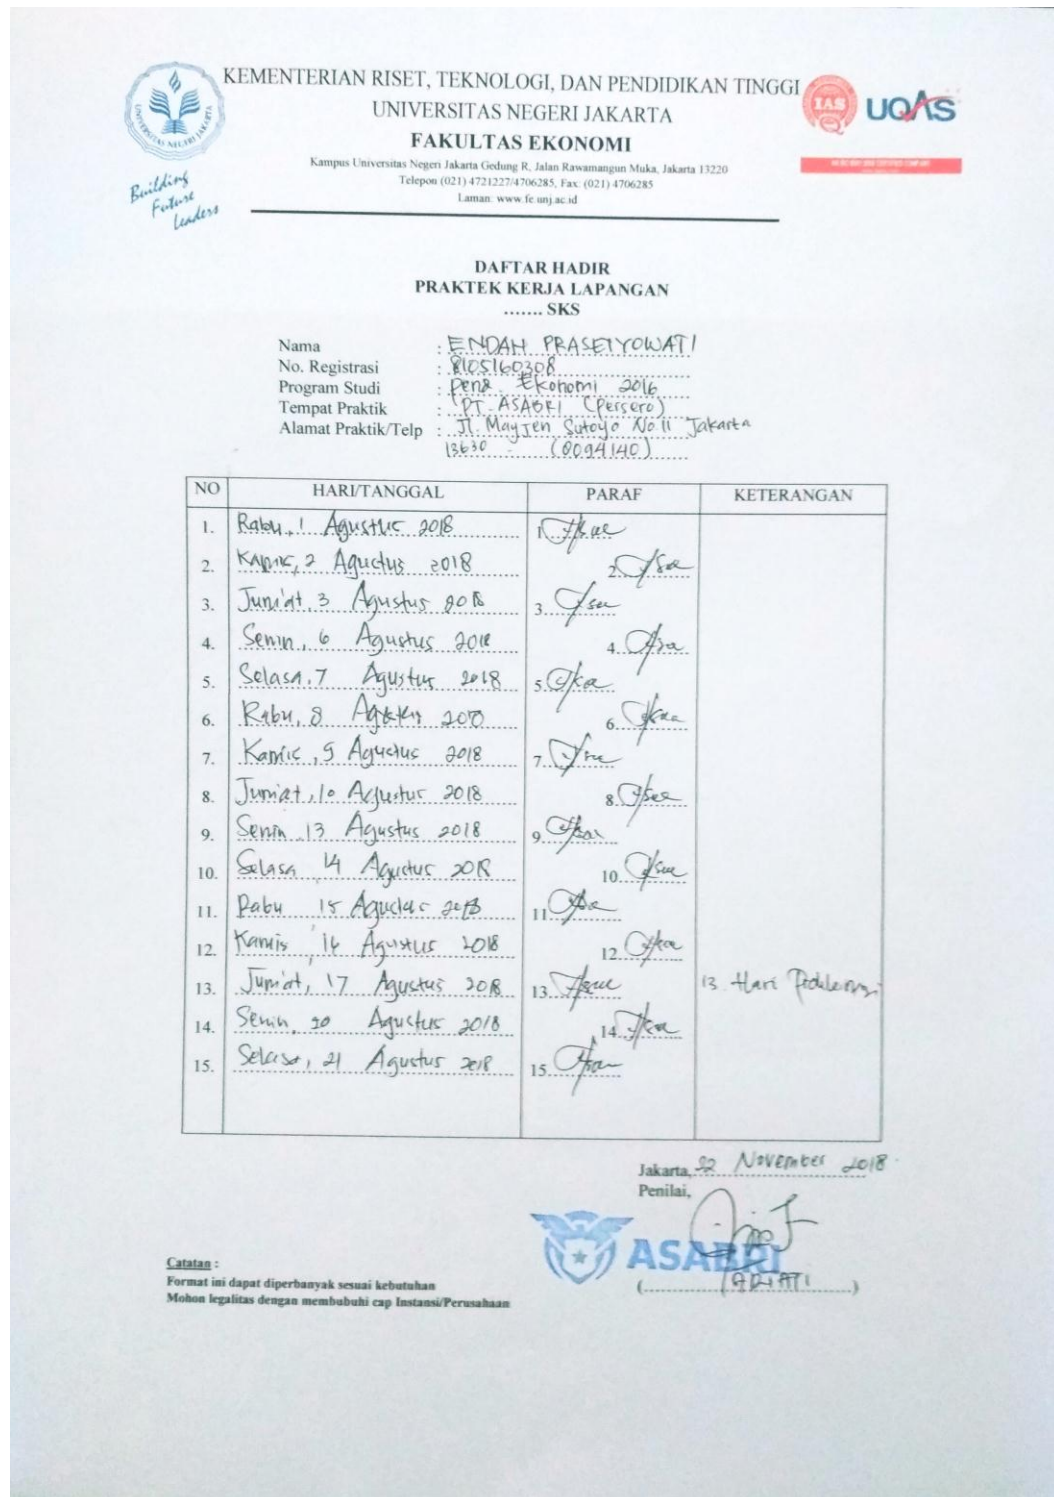 KEMENTERIAN RISET, TEKNOLOGI, DAN PENDIDIKAN TINGGI
UNIVERSITAS NEGERI JAKARTA
FAKULTAS EKONOMI
Kampus Universitas Negeri Jakarta Gedung R, Jalan Rawamangun Muka, Jakarta 13220
Telepon (021) 4721227/4706285, Fax: (021) 4706285
Laman: www.fe.unj.ac.id
UNIVERSITAS NEGERI JAKARTA
Building
Future
Leaders
IAS
UQAS
DAFTAR HADIR
PRAKTEK KERJA LAPANGAN
....... SKS
Nama : ENDAH PRASETYOWATI
No. Registrasi : 8105160308
Program Studi : Pend. Ekonomi 2016
Tempat Praktik : PT. ASABRI (Persero)
Alamat Praktik/Telp : Jl. Mayjen Sutoyo No.11 Jakarta
13630 - (8094140)
NO HARI/TANGGAL PARAF KETERANGAN
1. Rabu, 1 Agustus 2018 1.
2. Kamis, 2 Agustus 2018 2.
3. Jum'at, 3 Agustus 2018 3.
4. Senin, 6 Agustus 2018 4.
5. Selasa, 7 Agustus 2018 5.
6. Rabu, 8 Agustus 2018 6.
7. Kamis, 9 Agustus 2018 7.
8. Jum'at, 10 Agustus 2018 8.
9. Senin 13 Agustus 2018 9.
10. Selasa, 14 Agustus 2018 10.
11. Rabu 15 Agustus 2018 11.
12. Kamis, 16 Agustus 2018 12.
13. Jum'at, 17 Agustus 2018 13. 13. Hari
14. Senin, 20 Agustus 2018 14.
15. Selasa, 21 Agustus 2018 15.
Jakarta, 22 November 2018.
Penilai,
ASABRI
(ADIATI)
Catatan :
Format ini dapat diperbanyak sesuai kebutuhan
Mohon legalitas dengan membubuhi cap Instansi/Perusahaan